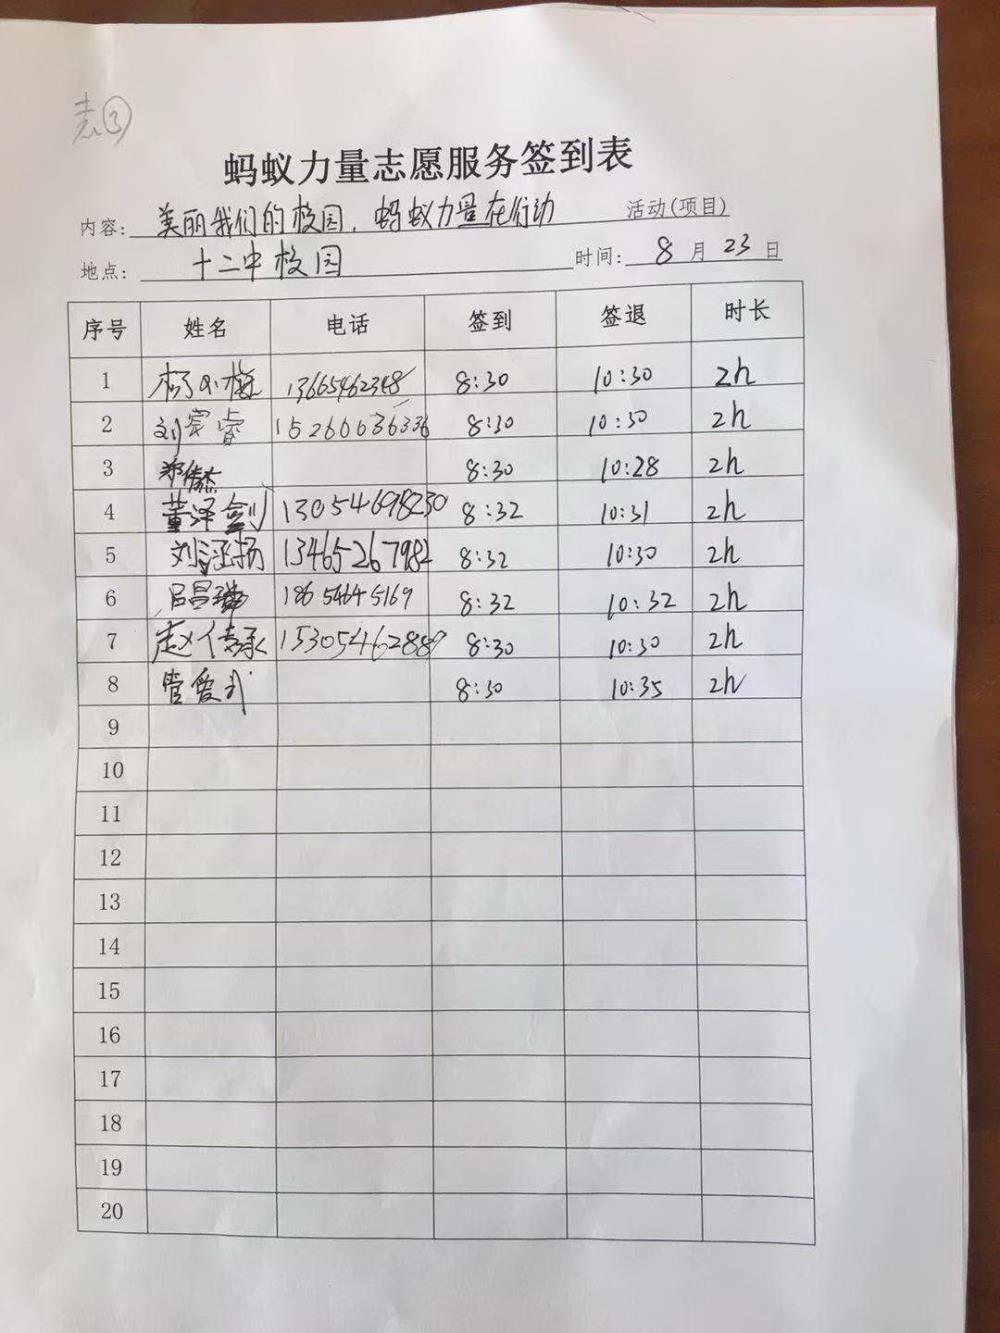 表③
蚂蚁力量志愿服务签到表
内容: 美丽我们的校园, 蚂蚁力量在行动 活动(项目)
地点: 十二中校园 时间: 8 月 23 日
序号 姓名 电话 签到 签退 时长
1 杨小梅 13665462348 8:30 10:30 2h
2 刘宗睿 15260636336 8:30 10:30 2h
3 8:30 10:28 2h
4 董泽剑 13054698230 8:32 10:31 2h
5 刘涵扬 13465267982 8:32 10:30 2h
6 18654645169 8:32 10:32 2h
7 赵传承 15305462889 8:30 10:30 2h
8 管爱武 8:30 10:35 2h
9
10
11
12
13
14
15
16
17
18
19
20